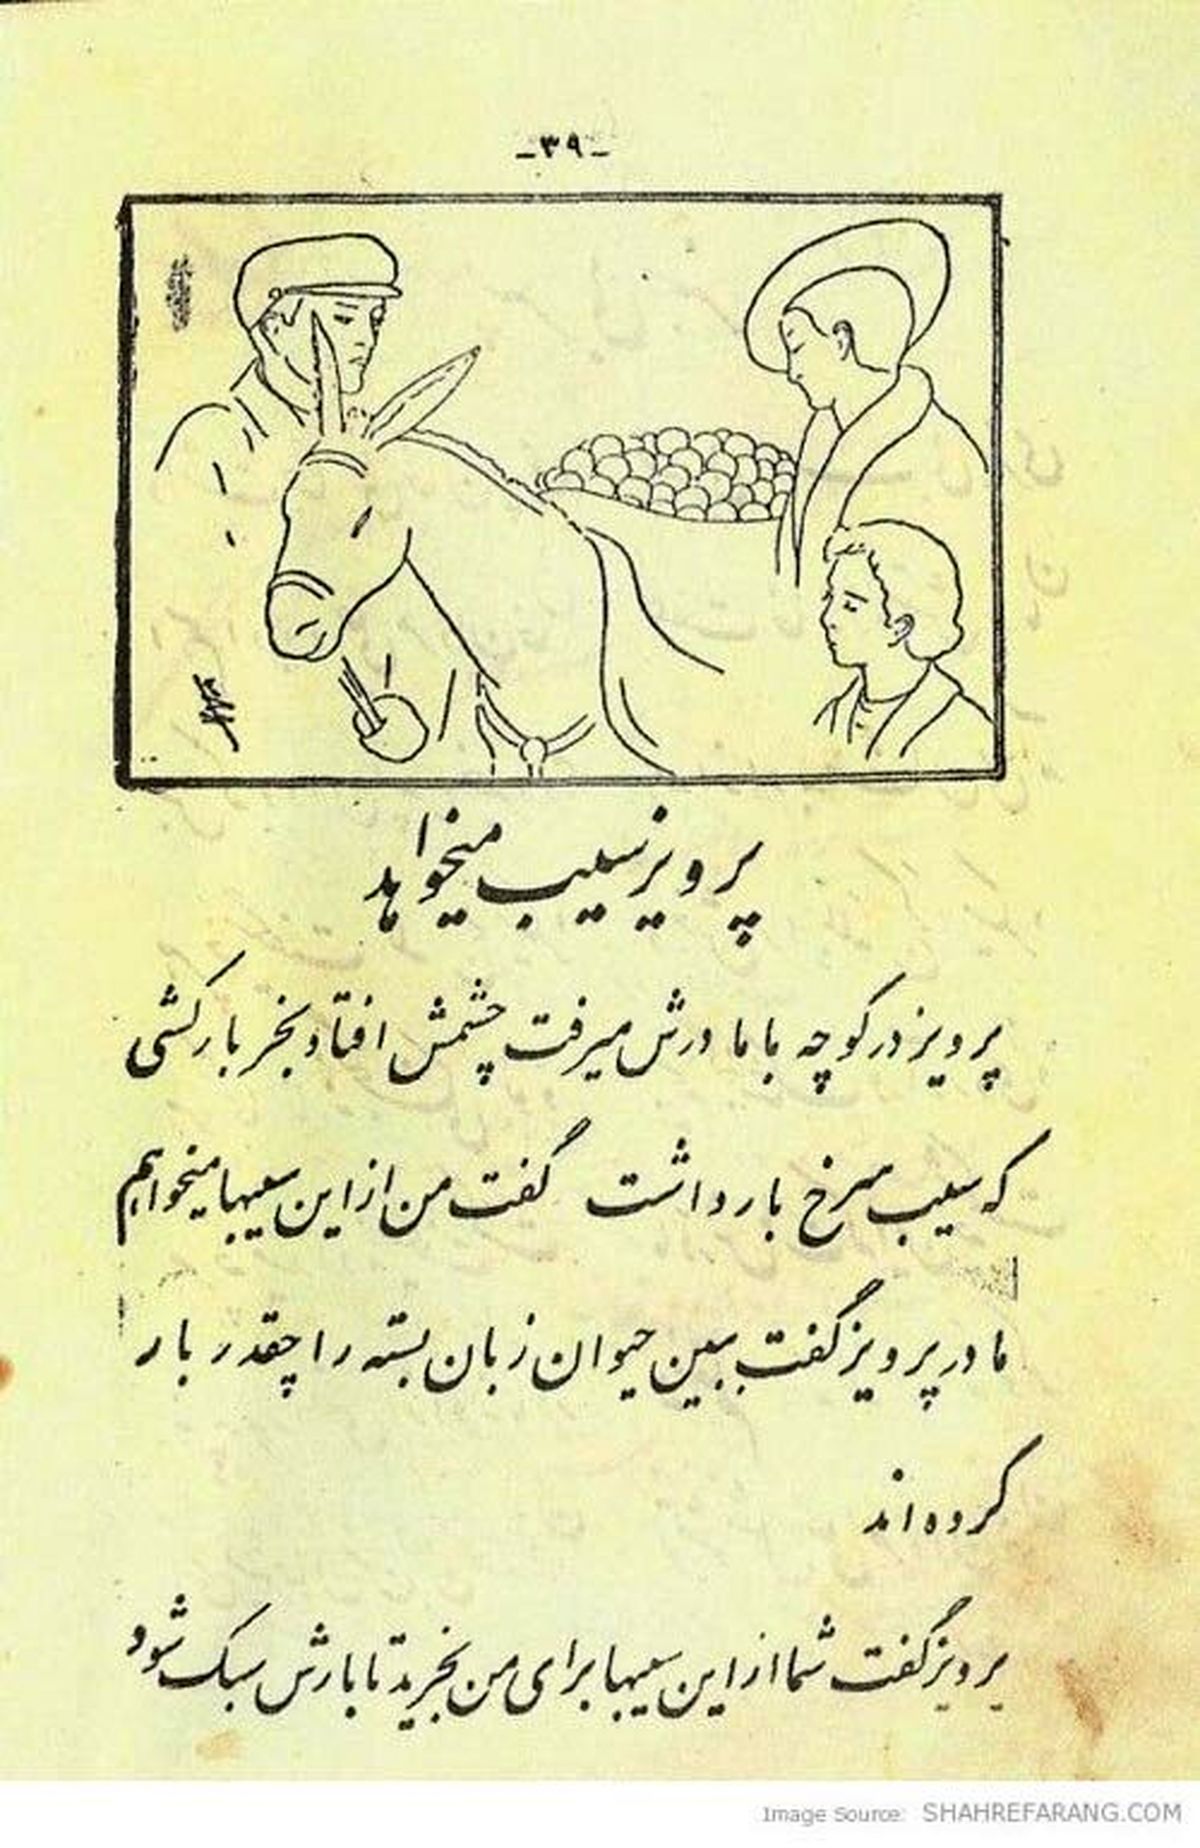 -۳۹-
پرویز سیب میخواهد
پرویز در کوچه با مادرش میرفت چشمش افتاد بخر بارکشی
که سیب سرخ بار داشت گفت من از این سیبها میخواهم
مادر پرویز گفت ببین حیوان زبان بسته را چقدر بار
کرده اند
پرویز گفت شما از این سیبها برای من بخرید تا بارش سبک شود
Image Source: SHAHREFARANG.COM